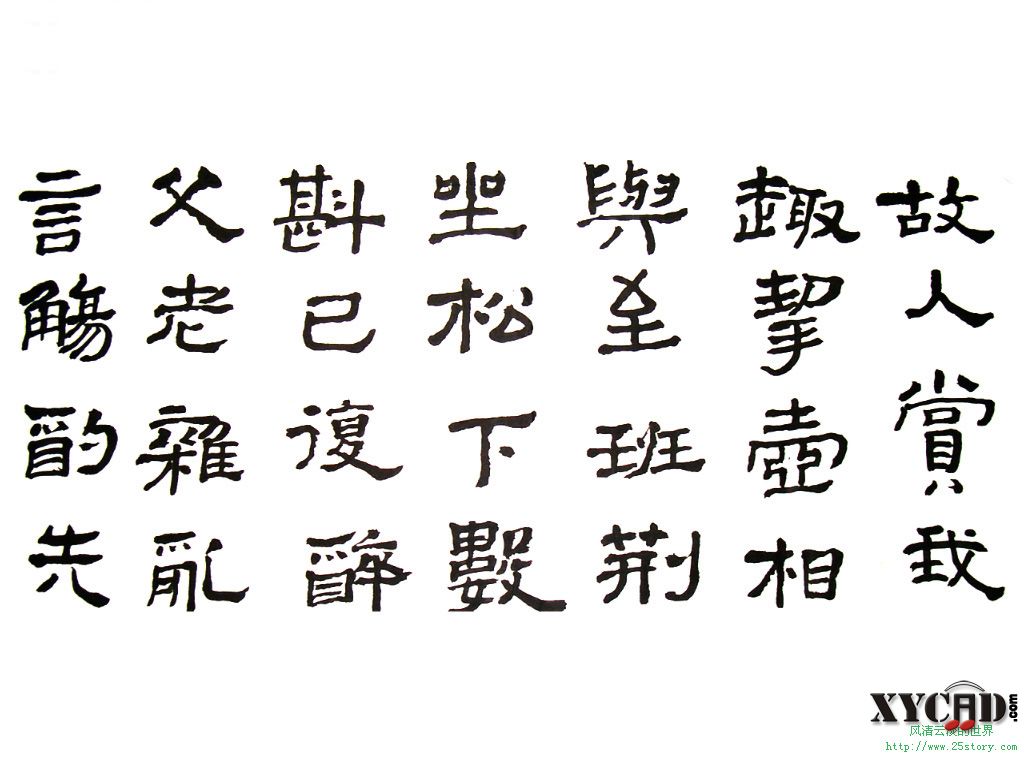 故人賞我
趣挈壺相
與至班荆
坐松下數
斟已復醉
父老雜亂
言觴酌先
XYCAD.com
风清云的世界
http://www.25story.com